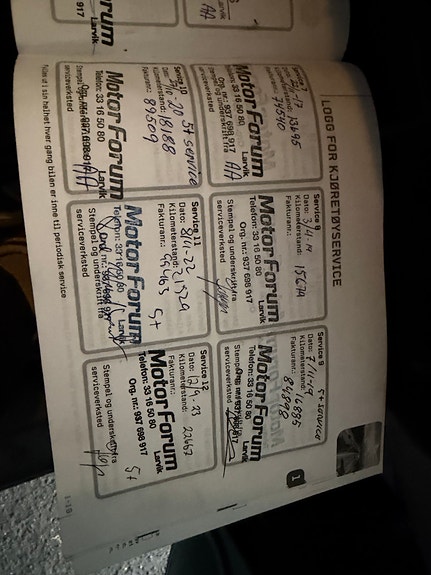 LOGG FOR KJØRETØYSERVICE
Service 7
13695
74540
Motor Forum
Larvik
Telefon: 33 16 50 80
Org. nr.: 937 698 917
Stempel og underskrift fra
serviceverksted
AA
Service 8
Dato: 3/
Kilometerstand: 15674
Fakturanr.:
Motor Forum
Larvik
Telefon: 33 16 50 80
Org. nr.: 937 698 917
Stempel og underskrift fra
serviceverksted
Service 9 S+ service
Dato: 7/11-19
Kilometerstand: 16885
Fakturanr.: 84898
Motor Forum
Larvik
Telefon: 33 16 50 80
Org. nr. 937 698 917
serviceverksted
1
Service 10 S+ service
20
Kilometerstand: 18188
Fakturanr.: 89509
Motor Forum
Larvik
Telefon: 33 16 50 80
Org. nr. 937 698 917
serviceverksted
AA
Service 11
Dato: 8/11-22
Kilometerstand: 21529
Fakturanr.: 96463
S+
Motor Forum
Larvik
Telefon: 33 16 50 80
Stempel og underskrift fra
serviceverksted
Service 12
Dato: 12/9 23
Kilometerstand: 22663
Fakturanr.:
Motor Forum
Larvik
Telefon: 33 16 50 80
Org. nr.: 937 698 917
S+
Stempel og underskrift fra
serviceverksted
Fylles ut i sin helhet hver gang bilen er inne til periodisk service